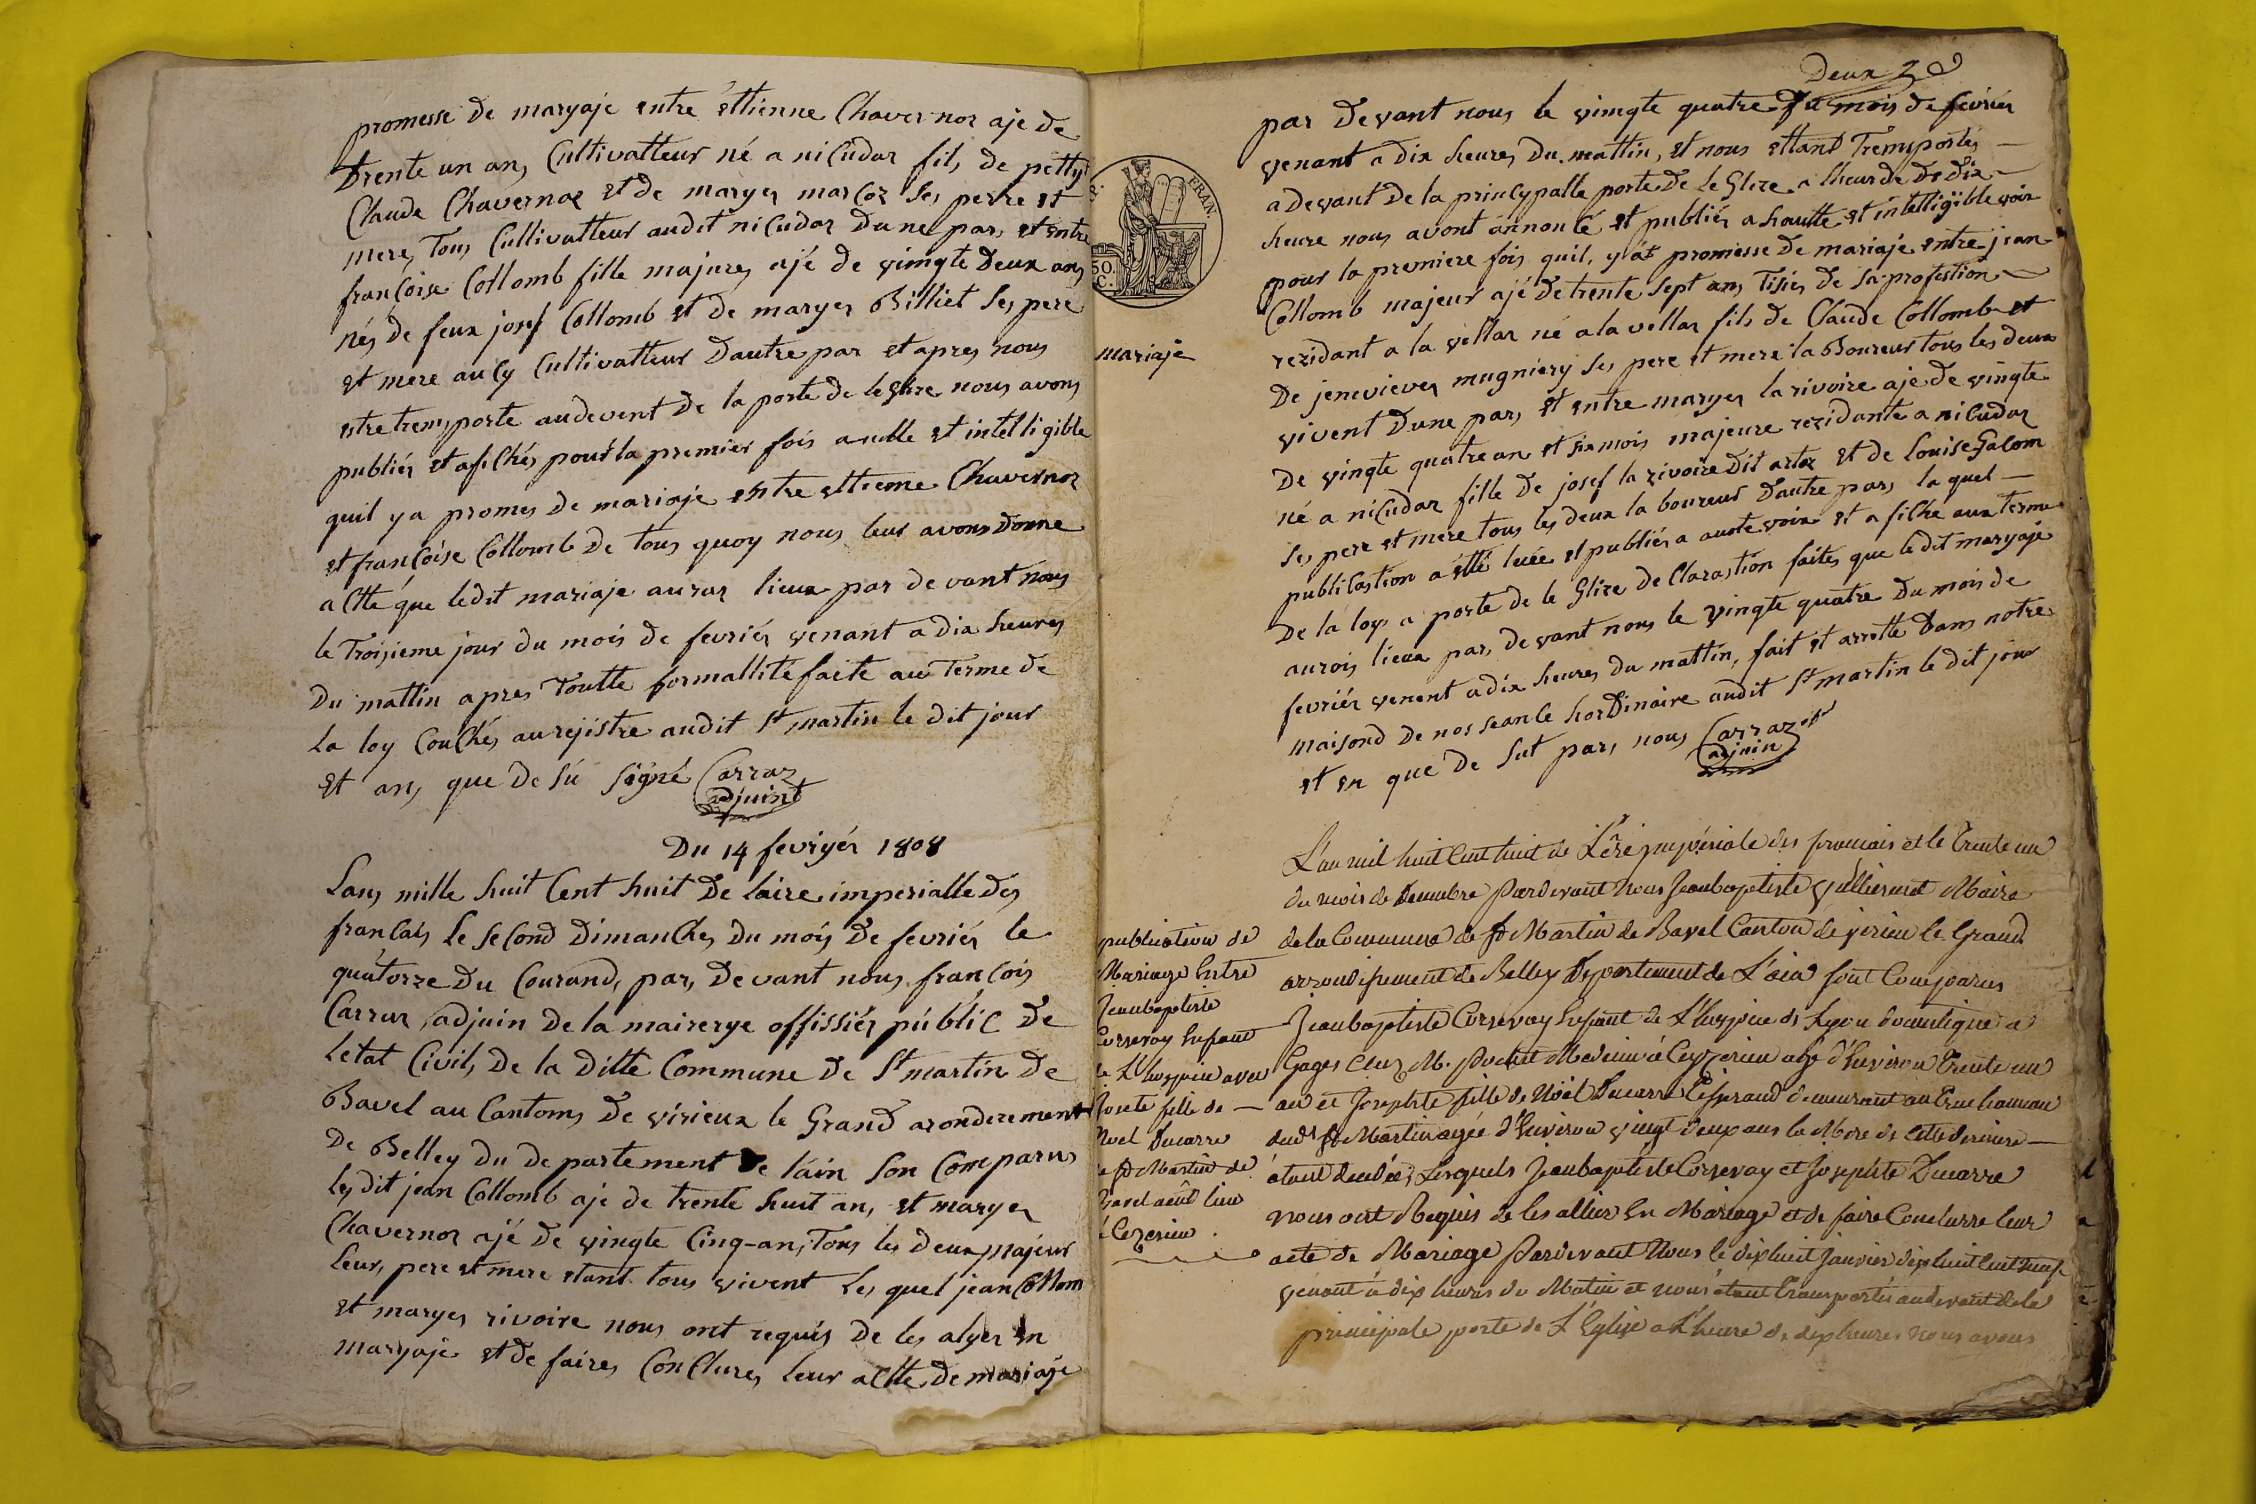 promesse de maryaje entre éttienne Chavernoz aje de
trente un an, Cultivatteur né a niCudaz fils de petty
Claude Chavernoz et de maryes marCoz Ses perre et
mere, tous Cultivatteur audit niCudaz dune par, et entre
franCoise Collomb fille majures ajé de vimgte deux an,
nés de feux josef Collomb et de maryes Billiet Ses pere
et mere auCy Cultivatteur dautre par et apres nous
etre tremsporte audevent de la porte de leglize nous avons
publiés et afiChés pour la premier fois a et intelligible
quil y a promes de mariaje entre ettienne Chavernoz
et franCoise Collomb de tous quoy nous leur avons donne
aCtte que ledit mariaje auraz lieux par devant nous
le troisieme jour du mois de fevriés venant a dix heures
du mattin apres toutte formallité faite au terme de
la loy CouChés au rejistre audit St martin le dit jour
et an, que de sú signé Carraz
adjuint
Du 14 fevriyér 1808
Lans mille huit Cent huit de laire imperialle des
franCais Le SeCond dimanChes du mois de fevriés le
quatorze du Courand, par, devant nous franCois
Carraz, adjuin de la mairerye offissiés públiC de
letat Civil, de la ditte Commune de St martin de
Bavel au Cantom, de vírieux le Grand aronderement
de Belley du departement de lain Son Comparus
les dit jean Collomb aje de trente huit an, et maryes
Chavernoz ajé de vingte Cinq-an, tous les deux majeur
leur, pere et mere etant tous vivent Les quel jean Collom
et maryes rivoire nous ont requis de les alyer en
maryaje et de faires ConClures leur aCtte de mariaje
Deux 2
par devant nous le vimgte quatre du mois de fevriér
venant a dix heures du mattin, et nous ettant Tremsportés
a devant de la prinCypalle porte de le Glize a lheurde de dix
heure nous avont annonCé et publiés a hautte et intelligible voix
pour la premiere fois quil, y at promesse de mariaje entre jean
Collomb majeur ajé de trente Sept an, Tisies de Sa profestion
rezidant a la vellaz né a la vellaz fils de Claude Collomb et
de jenevieves mugniery Ses pere et mere laBoureur tous les deux
vivent dune par, et entre maryes la rivoire aje de vingte
de vingte quatre an et six mois majeure rezidante a niCudaz
né a niCudaz fille de josef la rivoire dit artoz et de Louise Galom
Ses pere et mere tous les deux la boureur dautre par, la quel
publiCastion a étté luée et publiés a aute voix et a fiChe aux terme
de la loy a porte de le Glize de Clarastion faites que le dit maryaje
aurois lieux par, devant nous le vingte quatre du mois de
fevriér venent a dix heures du mattin, fait et arrette dans notre
maisond de nos seanCe hordinaire audit St martin le dit jour
et en que de Sut par, nous Carraz
adjuin
mariaje
L'an mil huit Cent huit de L'ére impériale des francais et le trente un
du mois de Decembre Pardevant Nous Jeanbaptiste Maire
de la Commune de St Martin de Bavel Canton de virieu le Grand
arrondissement de Belley Département de L'ain sont Comparus
Jeanbaptiste Corsevay Enfant de L'hospice de Lyon domestique a
Gages Chez M. Medecin à Ceyzerieu agé d'Environ trente un
an et Josephte fille de Noël Ducarre demeurant au hameau
dudt St Martin agée d'Environ vingt deux ans la Mere de Cette derniere
étant Decedée; Lesquels Jeanbaptiste Corsevay et Josephte Ducarre
nous ont Requis de les allier En Mariage et de faire Conclurre leur
acte de Mariage Pardevant Nous le dixhuit Janvier dixhuit Cent neuf
venant à dix heures du Matin et nous étant transportés audevant de la
principale porte de L'Eglise a L'heure de dix heures nous avons
publication de
Mariage Entre
Jeanbaptiste
Corsevay Enfant
de L'hospice avec
Josete fille de
Noel Ducarre
de St Martin de
Bavel aeût lieu
à Cezerieu
FRAN.
50.
C.